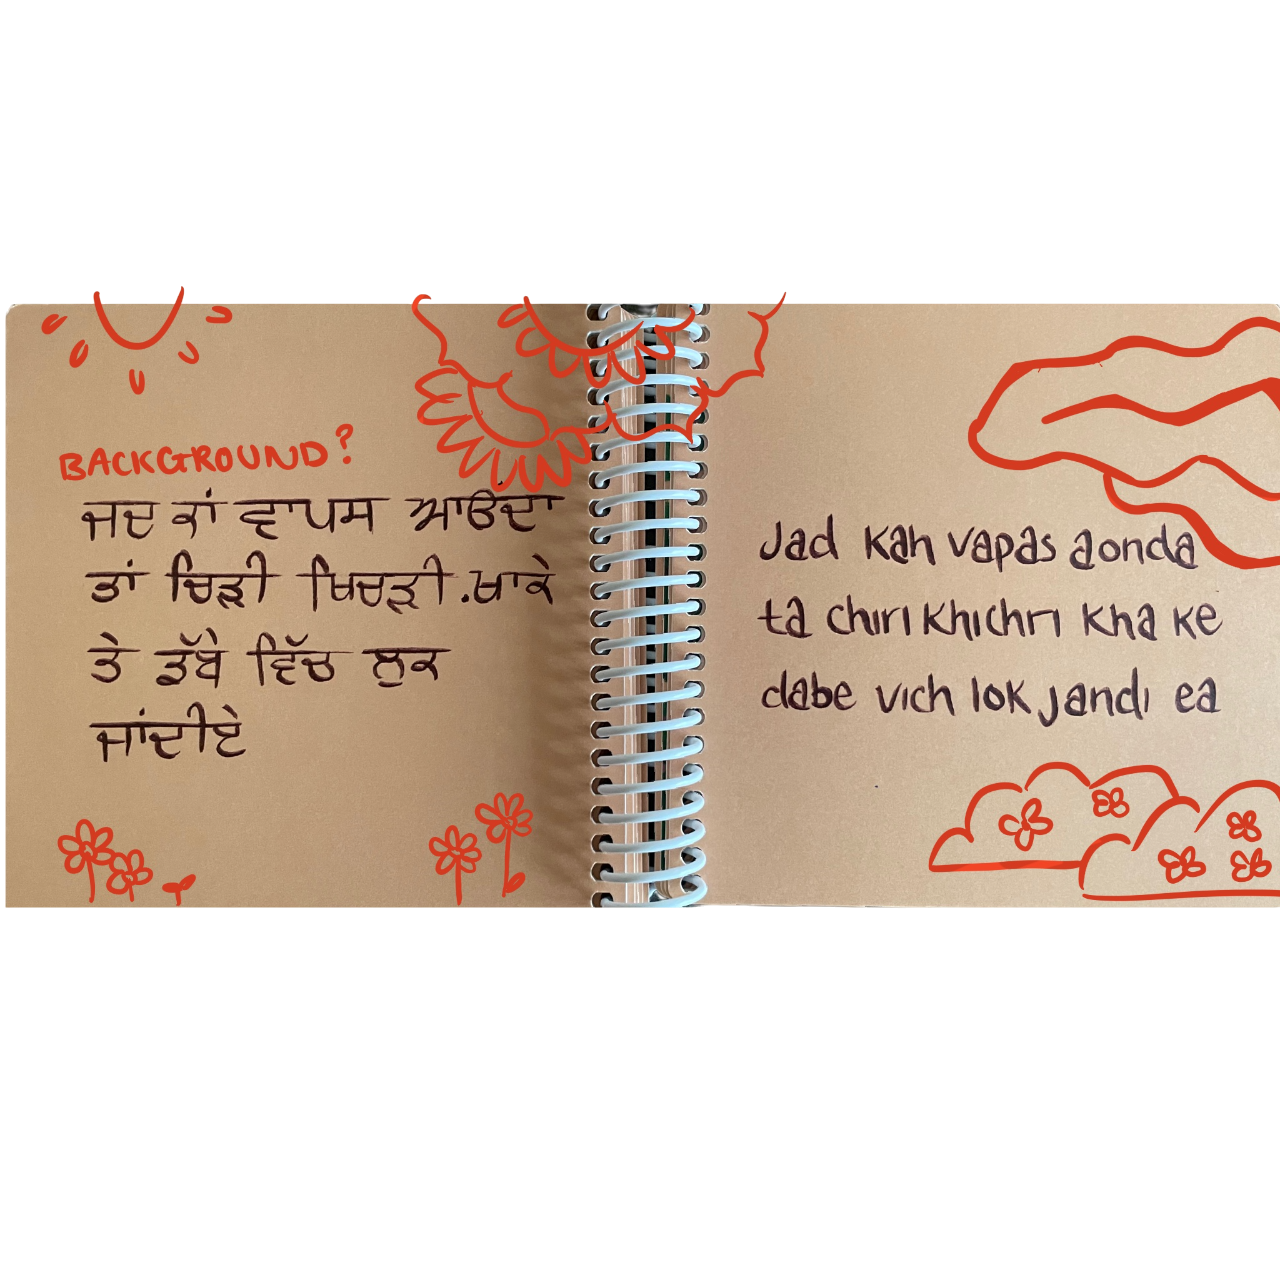 BACKGROUND?
ਜਦ ਕਾਂ ਵਾਪਸ ਆਉਂਦਾ
ਤਾਂ ਚਿੜੀ ਖਿਚੜੀ.ਖਾਕੇ
ਤੇ ਡੱਬੇ ਵਿੱਚ ਲੁਕ
ਜਾਂਦੀਏ
Jad kah vapas aonda
ta chiri khichri kha ke
dabe vich lok jandi ea